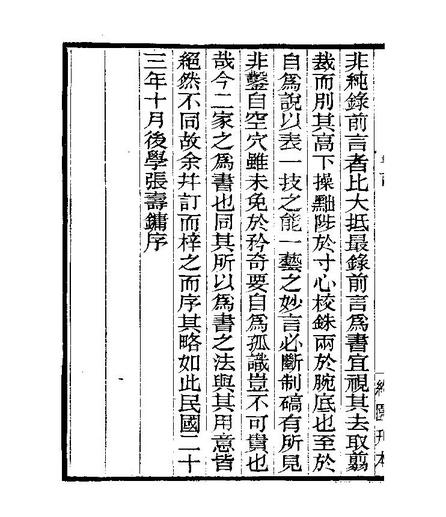 非純錄前言者比大抵最錄前言爲書宜視其去取翦
裁而別其高下操黜陟於寸心校銖兩於腕底也至於
自爲說以表一技之能一藝之妙言必斷制碻有所見
非鑿自空穴雖未免於矜奇要自爲孤識豈不可貴也
哉今二家之爲書也同其所以爲書之法與其用意皆
絕然不同故余幷訂而梓之而序其略如此民國二十
三年十月後學張壽鏞序